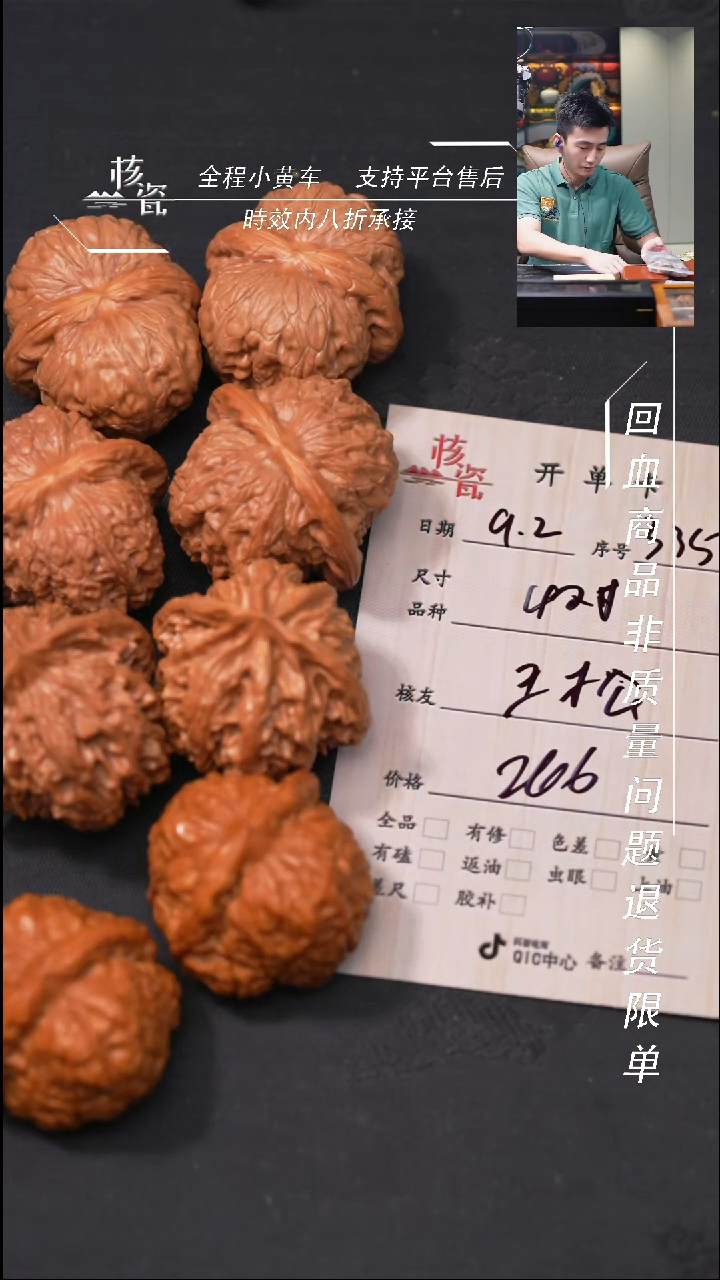 核瓷
全程小黄车 支持平台售后
時效内八折承接
回血商品非质量问题退货限单
核瓷
开单卡
日期 9.2 序号 335
尺寸
品种
核友
价格 266
全品 有修 色差
有磕 返油 虫眼 上油
差尺 胶补
抖音电商
QIC中心 备注